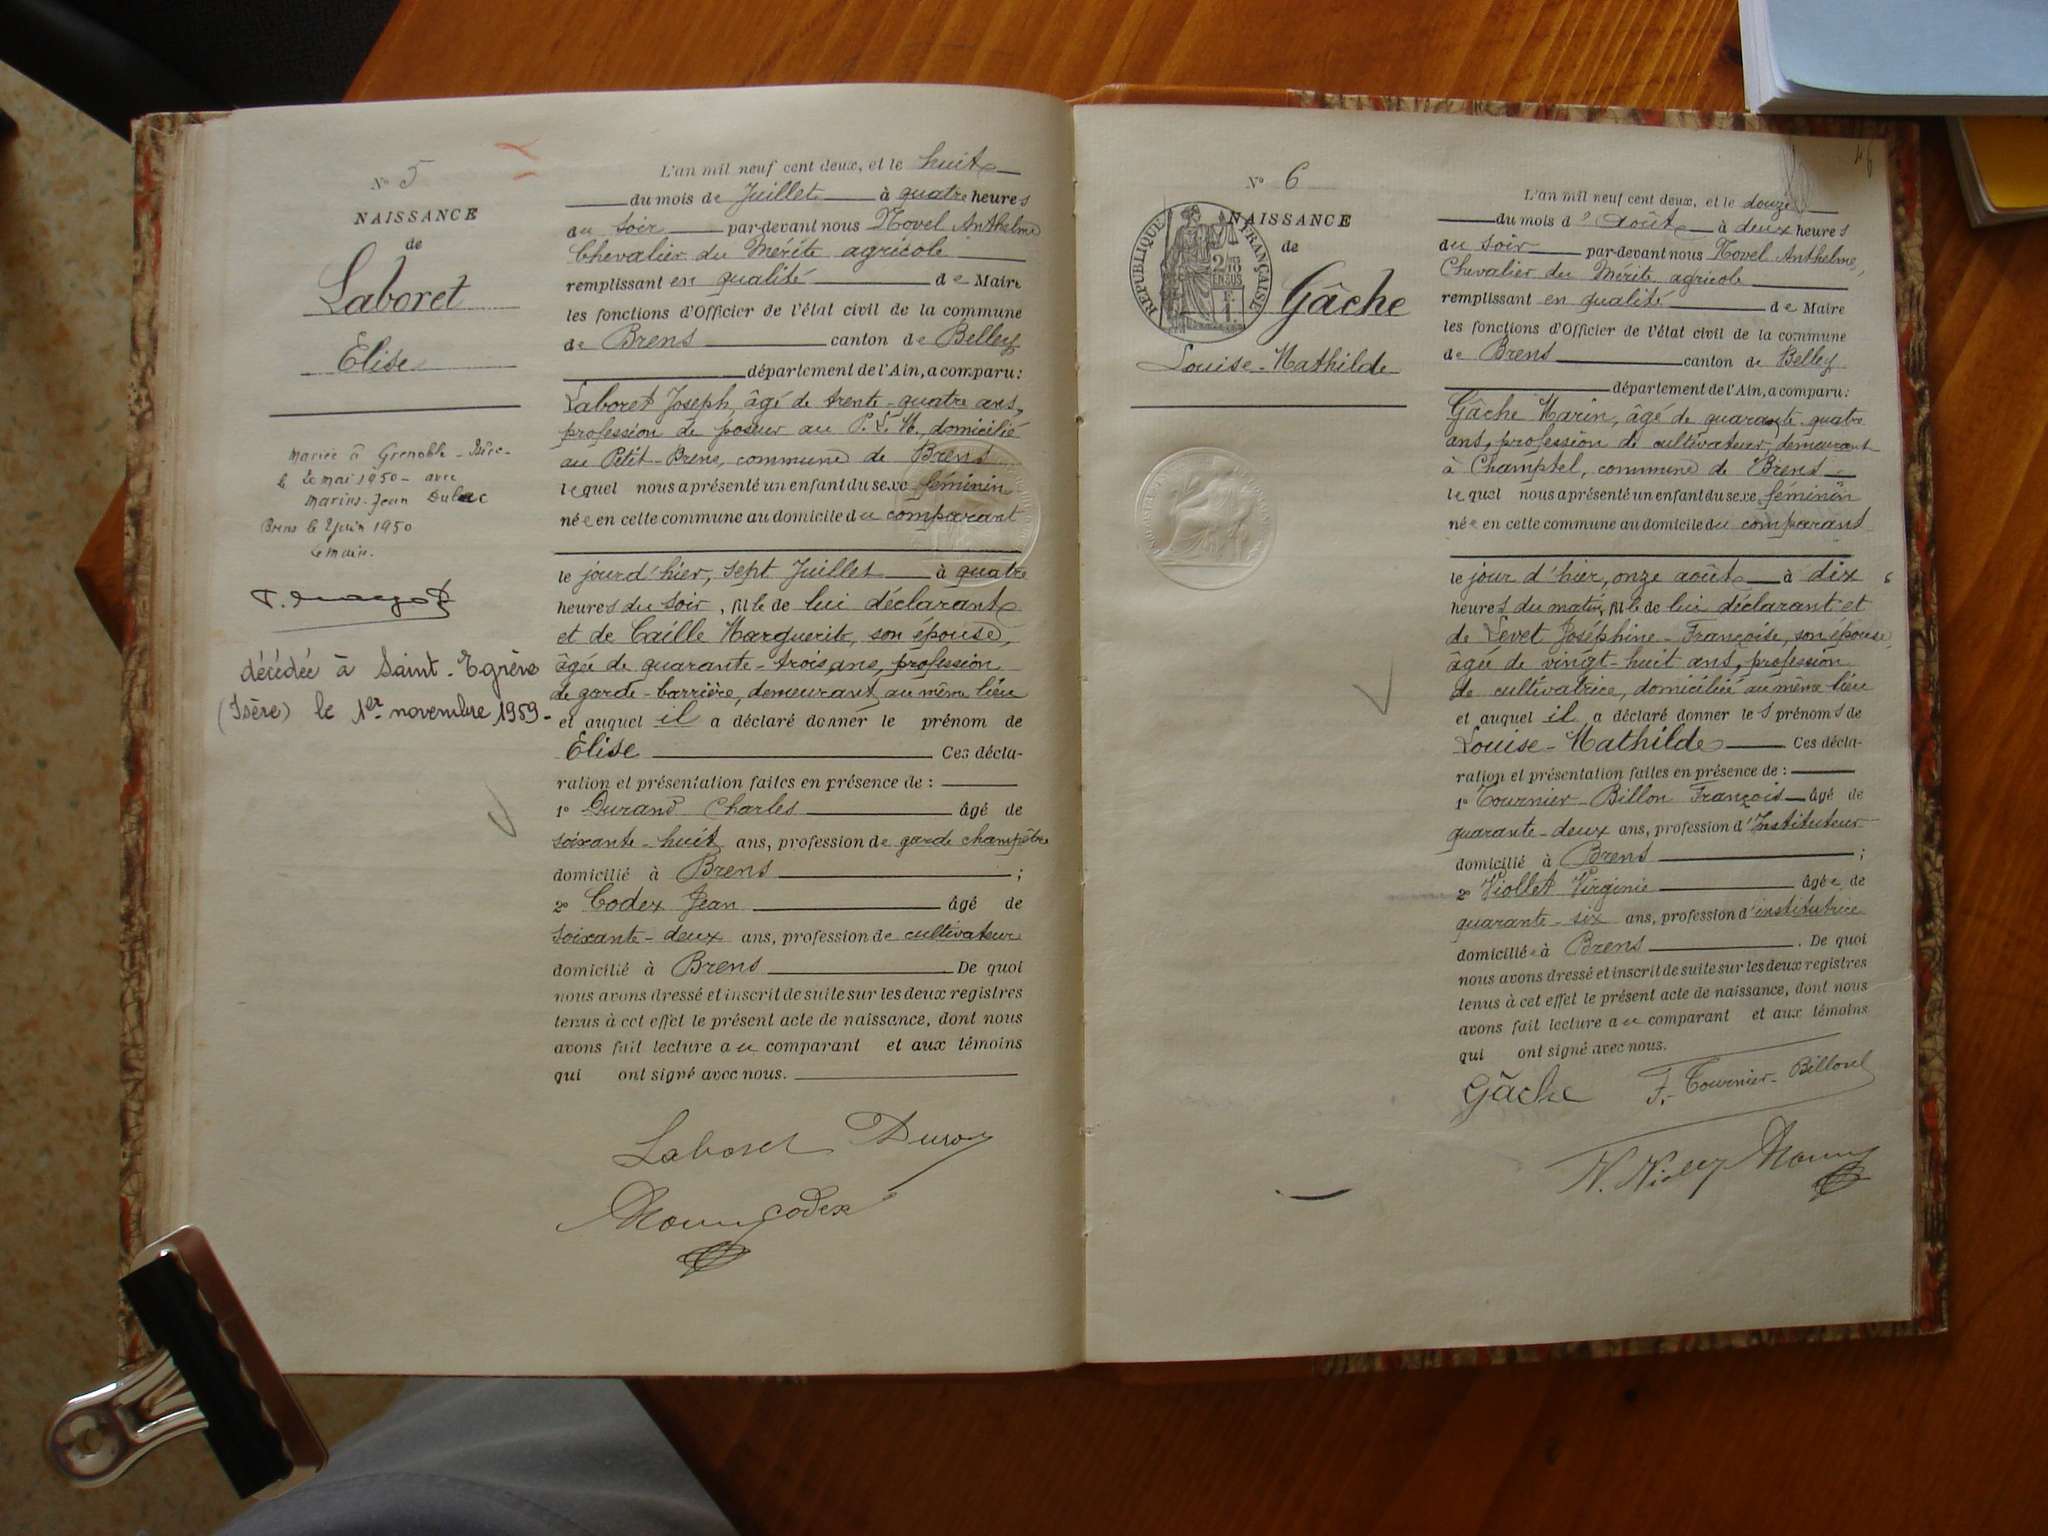 N° 5
NAISSANCE
de
Laboret
Elise
Mariée à Grenoble - Isère -
le 20 mai 1950 - avec
Marius-Jean Dulac
Brens le 2 juin 1950
Le Maire.
décédée à Saint-Egrève
(Isère) le 1er novembre 1959-
L'an mil neuf cent deux, et le huit
du mois de Juillet à quatre heures
du soir par-devant nous Novel Anthelme
Chevalier du Mérite agricole
remplissant en qualité de Maire
les fonctions d'Officier de l'état civil de la commune
de Brens canton de Belley
département de l'Ain, a comparu:
Laboret Joseph, âgé de trente-quatre ans,
profession de poseur au P.L.M., domicilié
au Petit-Brens, commune de Brens
lequel nous a présenté un enfant du sexe féminin
née en cette commune au domicile du comparant
le jour d'hier, sept Juillet à quatre
heures du soir, fille de lui déclarant
et de Caille Marguerite, son épouse,
âgée de quarante-trois ans, profession
de garde-barrière, demeurant au même lieu
et auquel il a déclaré donner le prénom de
Elise Ces décla-
ration et présentation faites en présence de :
1° Durand Charles âgé de
soixante-huit ans, profession de garde champêtre
domicilié à Brens ;
2° Codex Jean âgé de
soixante-deux ans, profession de cultivateur
domicilié à Brens De quoi
nous avons dressé et inscrit de suite sur les deux registres
tenus à cet effet le présent acte de naissance, dont nous
avons fait lecture au comparant et aux témoins
qui ont signé avec nous.
Laboret
Codex
N° 6
NAISSANCE
de
Gâche
Louise-Mathilde
RÉPUBLIQUE FRANÇAISE
46
L'an mil neuf cent deux, et le douze
du mois d'Août à deux heures
du soir par-devant nous Novel Anthelme,
Chevalier du Mérite agricole
remplissant en qualité de Maire
les fonctions d'Officier de l'état civil de la commune
de Brens canton de Belley
département de l'Ain, a comparu:
Gâche Marin, âgé de quarante-quatre
ans, profession de cultivateur, demeurant
à Champtel, commune de Brens
lequel nous a présenté un enfant du sexe féminin
née en cette commune au domicile du comparant
le jour d'hier, onze août à dix
heures du matin, fille de lui déclarant et
de Levet Joséphine-Françoise, son épouse,
âgée de vingt-huit ans, profession
de cultivatrice, domiciliée au même lieu
et auquel il a déclaré donner les prénoms de
Louise-Mathilde Ces décla-
ration et présentation faites en présence de :
1° Tournier-Billon François âgé de
quarante-deux ans, profession d'Instituteur
domicilié à Brens ;
2° Viollet Virginie âgée de
quarante-six ans, profession d'institutrice
domiciliée à Brens . De quoi
nous avons dressé et inscrit de suite sur les deux registres
tenus à cet effet le présent acte de naissance, dont nous
avons fait lecture au comparant et aux témoins
qui ont signé avec nous.
Gâche F. Tournier-Billon